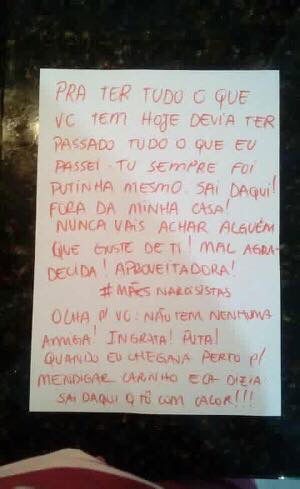 PRA TER TUDO O QUE
VC TEM HOJE DEVIA TER
PASSADO TUDO O QUE EU
PASSEI. TU SEMPRE FOI
PUTINHA MESMO. SAI DAQUI!
FORA DA MINHA CASA!
NUNCA VAIS ACHAR ALGUÉM
QUE GOSTE DE TI! MAL AGRA-
DECIDA! APROVEITADORA!
#MÃES NARCISISTAS
OLHA P/ VC: NÃO TEM NENHUMA
AMIGA! INGRATA! PUTA!
QUANDO EU CHEGAVA PERTO P/
MENDIGAR CARINHO ELA DIZIA
SAI DAQUI Q TÔ COM CALOR!!!